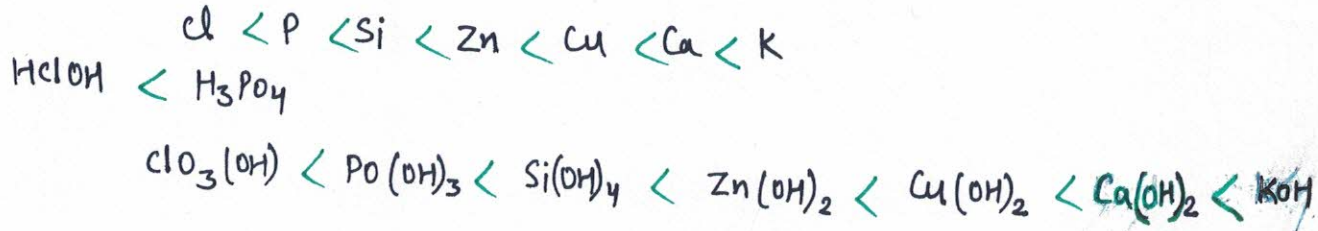 Cl < P < Si < Zn < Cu < Ca < K
HClOH < H₃PO₄
ClO₃(OH) < PO(OH)₃ < Si(OH)₄ < Zn(OH)₂ < Cu(OH)₂ < Ca(OH)₂ < KOH